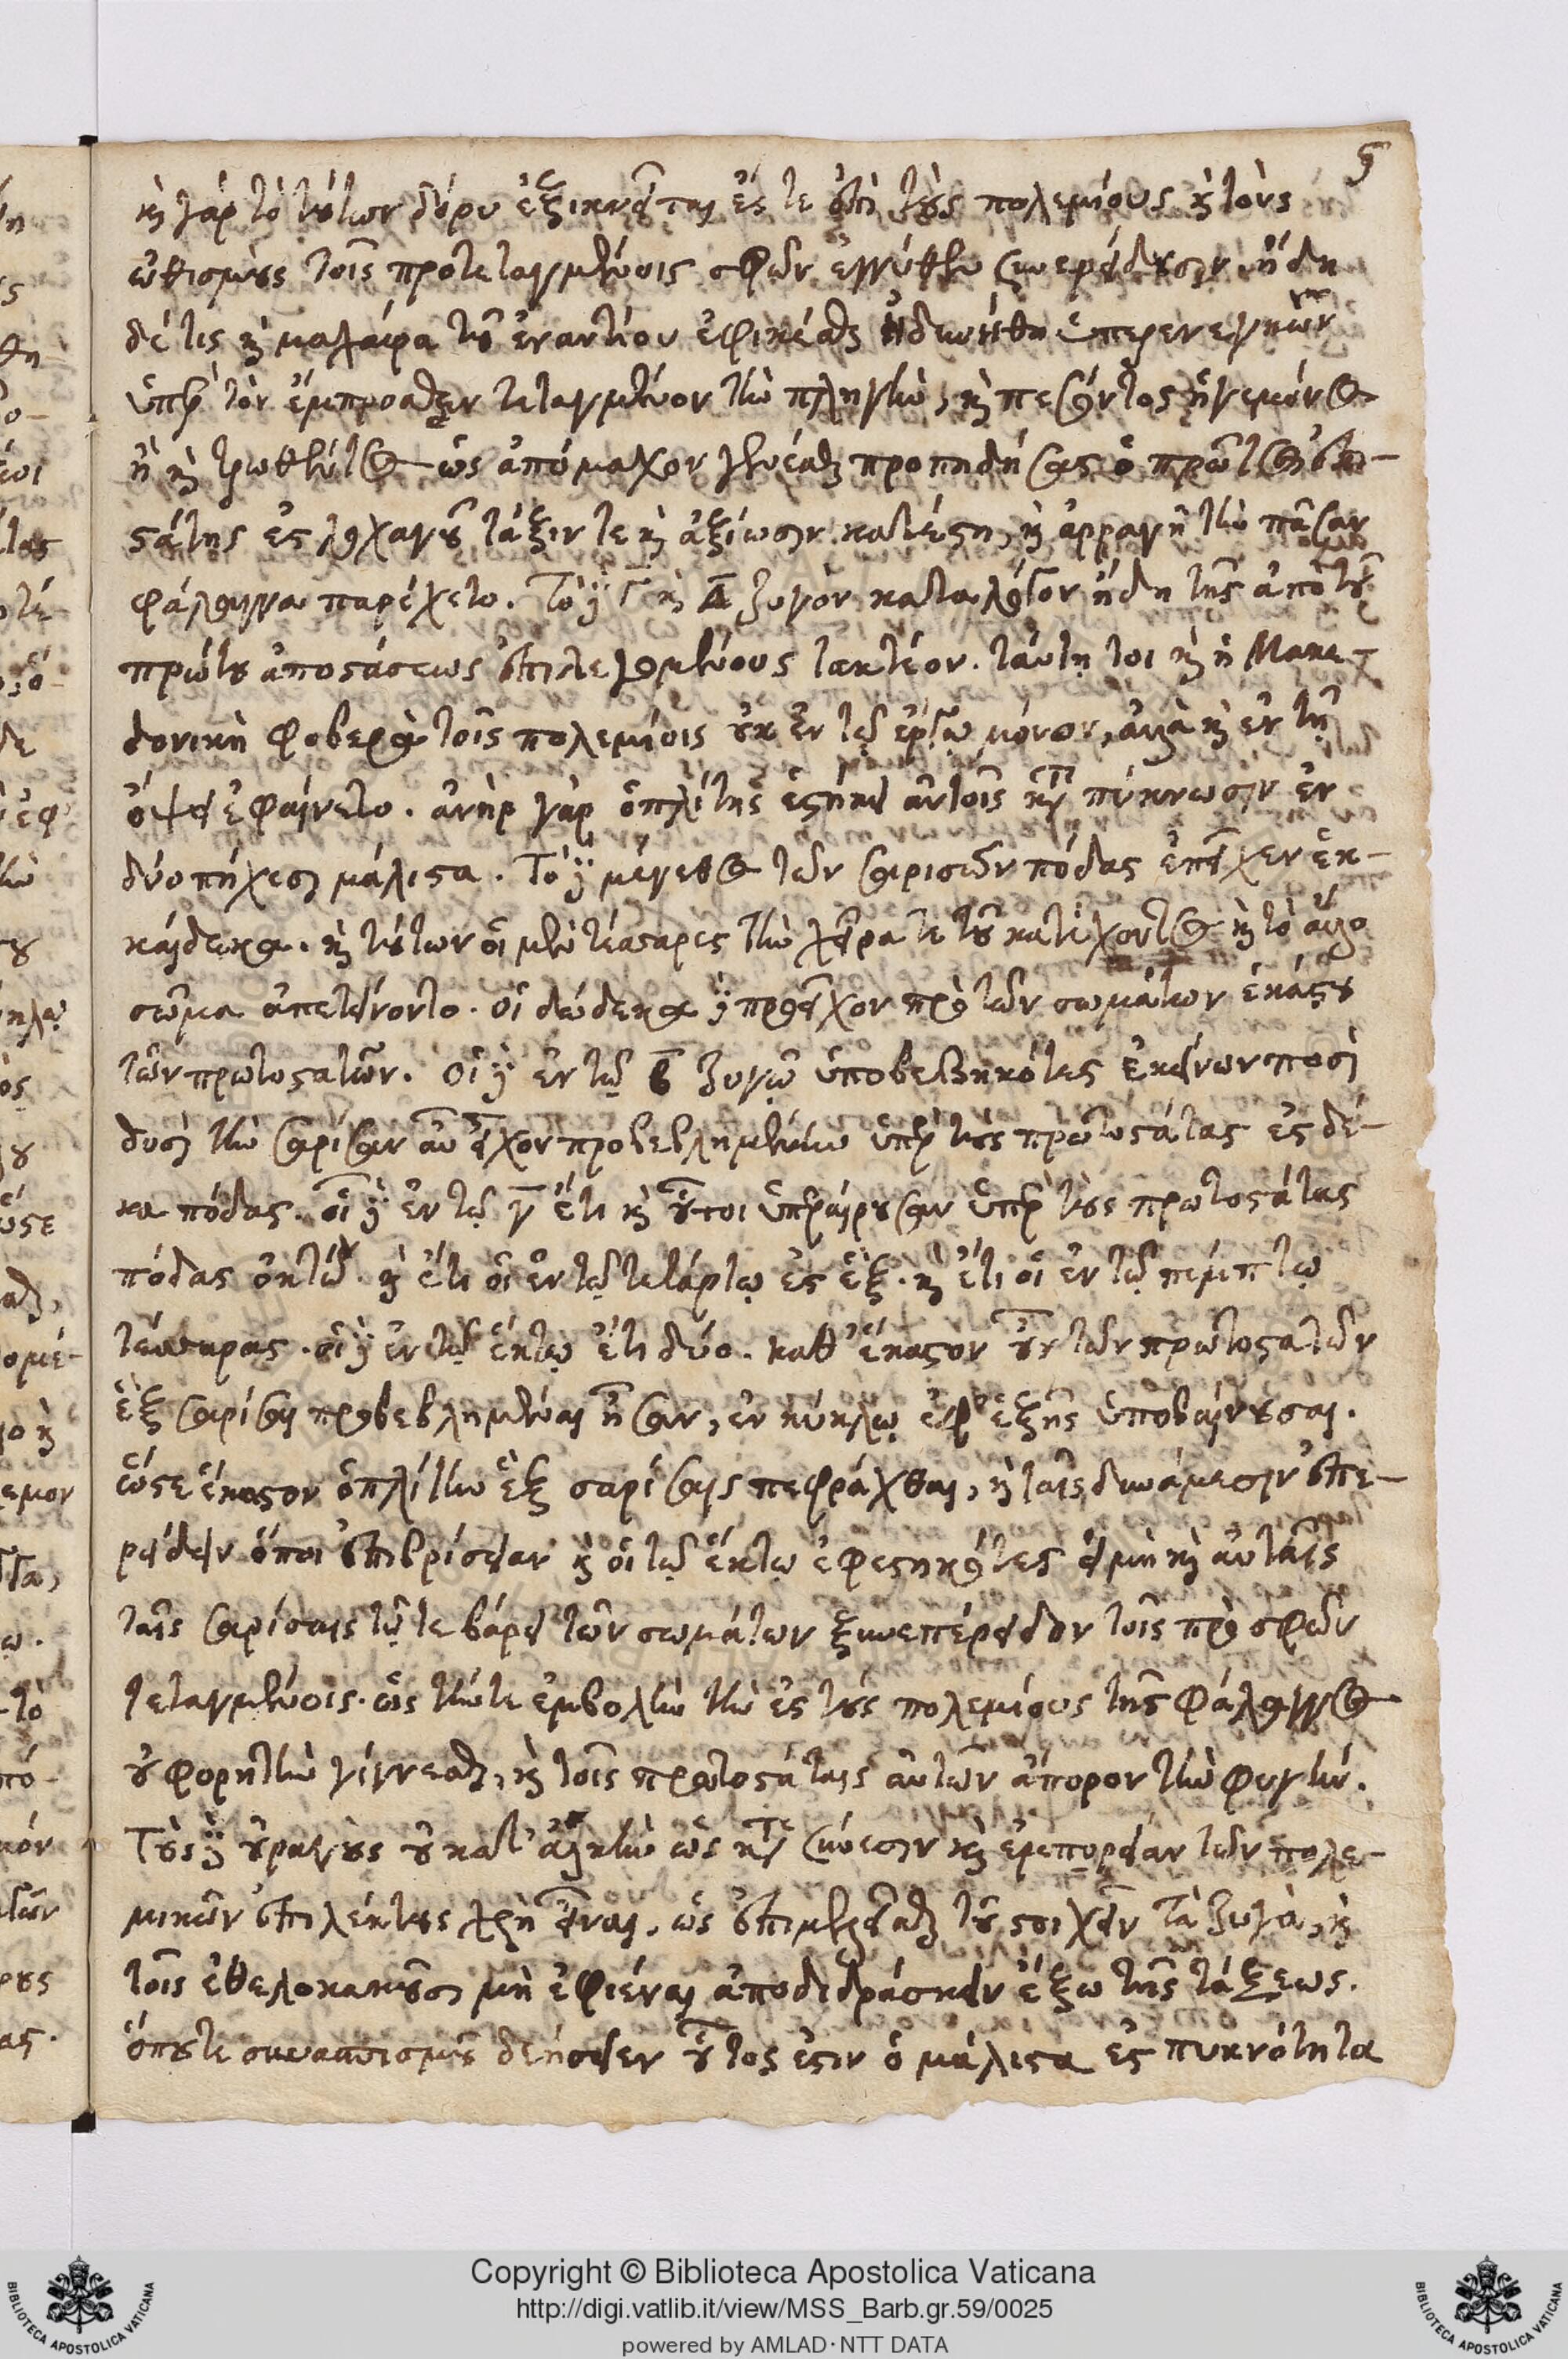 5
καὶ γὰρ τὸ τούτων δόρυ ἐξικνεῖται ἔς τε ἐπὶ τοὺς πολεμίους καὶ τοὺς
ὠθισμοὺς τοῖς προτεταγμένοις σφῶν ἐγγύθεν συνερείδουσιν. ἤδη
δέ τις καὶ μαχαίρα τοῦ ἐναντίου ἐφικέσθαι ἠδυνήθη ὑπερενεγκὼν
ὑπὲρ τὸν ἔμπροσθεν τεταγμένον τὴν πληγὴν, καὶ πεσόντος ἡγεμόνος
ἢ καὶ τρωθέντος ὡς ἀπόμαχον γενέσθαι προπηδήσας ὁ πρῶτος ἐπι-
στάτης ἐς λοχαγοῦ τάξιν τε καὶ ἀξίωσιν κατέστη, καὶ ἀρραγῆ τὴν πᾶσαν
φάλαγγα παρέχετο. Τὸ δὲ Γ καὶ Δ ζυγὸν κατὰ λόγον ἤδη τῆς ἀπὸ τοῦ
πρώτου ἀποστάσεως ἐπιλεγομένους τακτέον. ταύτῃ τοι καὶ ἡ Μακε-
δονικὴ φοβερὰ τοῖς πολεμίοις οὐκ ἐν τῷ ἔργῳ μόνον, ἀλλὰ καὶ ἐν τῇ
ὄψει ἐφαίνετο. ἀνὴρ γὰρ ὁπλίτης ἑστήκει αὐτοῖς κατὰ πύκνωσιν ἐν
δύο πήχεσι μάλιστα. Τὸ δὲ μέγεθος τῶν σαρισῶν πόδας ἐπεῖχεν ἑκ-
καίδεκα. καὶ τούτων οἱ μὲν τέσσαρες τὴν χεῖρά τε τοῦ κατέχοντος καὶ τὸ ἄλλο
σῶμα ἀπετείνοντο. οἱ δώδεκα δὲ προεῖχον πρὸ τῶν σωμάτων ἑκάστου
τῶν πρωτοστατῶν. Οἱ δὲ ἐν τῷ β ζυγῷ ὑποβεβηκότες ἐκείνων ποσὶ
δυσὶ τὴν σαρίσαν αὖ εἶχον προβεβλημένην ὑπὲρ τοὺς πρωτοστάτας ἐς δέ-
κα πόδας. οἱ δὲ ἐν τῷ γ ἔτι καὶ οὗτοι ὑπεραίρουσαν ὑπὲρ τοὺς πρωτοστάτας
πόδας ὀκτώ. καὶ ἔτι οἱ ἐν τῷ τετάρτῳ ἐς ἕξ. καὶ ἔτι οἱ ἐν τῷ πέμπτῳ
τέσσαρας. οἱ δὲ ἐν τῷ ἕκτῳ ἔτι δύο. καθ' ἕκαστον οὖν τῶν πρωτοστατῶν
ἓξ σαρίσαι προβεβλημέναι ἦσαν, ἐν κύκλῳ ἐφ' ἑξῆς ὑποβαίνουσαι.
ὥστε ἕκαστον ὁπλίτην ἓξ σαρίσαις πεφράχθαι, καὶ ταῖς δυνάμεσιν ἐπε-
ρείδειν ὅποι ἐπιβρίσειαν καὶ οἱ τῷ ἕκτῳ ἐφεστηκότες εἰ μὴ καὶ αὐταῖς
ταῖς σαρίσαις τῷ τε βάρει τῶν σωμάτων ξυνεπέρειδον τοῖς πρὸ σφῶν
τεταγμένοις. ὡς τήν τε ἐμβολὴν τὴν ἐς τοὺς πολεμίους τῆς φάλαγγος
οὐ φορητὴν γίγνεσθαι, καὶ τοῖς πρωτοστάταις αὐτῶν ἄπορον τὴν φυγὴν.
Τοὺς δὲ οὐραγοὺς οὐ κατ' ἀλκὴν ὡς κατά τε σύνεσιν καὶ ἐμπειρίαν τῶν πολε-
μικῶν ἐπιλέκτους χρὴ εἶναι, ὡς ἐπιμελεῖσθαι τοῦ στοιχεῖν τὰ ζυγὰ, καὶ
τοῖς ἐθελοκακοῦσι μὴ ἐφιέναι ἀποδιδράσκειν ἔξω τῆς τάξεως.
ὁπότε συνασπισμοῦ δεήσειεν οὗτος ἐστιν ὁ μάλιστα ἐς πυκνότητα
Copyright © Biblioteca Apostolica Vaticana
http://digi.vatlib.it/view/MSS_Barb.gr.59/0025
powered by AMLAD·NTT DATA